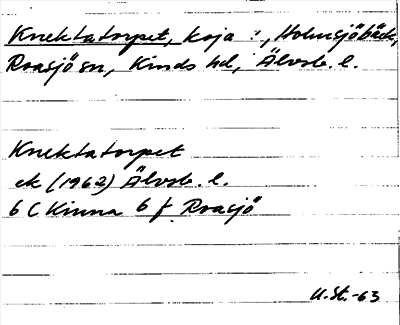 Knektatorpet, koja i, Holmsjöbäck,
Roasjö sn, Kinds hd, Älvsb. l.
Knektatorpet
ek (1962) Älvsb. l.
6 C Kinna 6 f Roasjö
U.St.-63